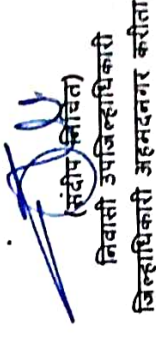 (संदीप निचित)
निवासी उपजिल्हाधिकारी
जिल्हाधिकारी अहमदनगर करीता